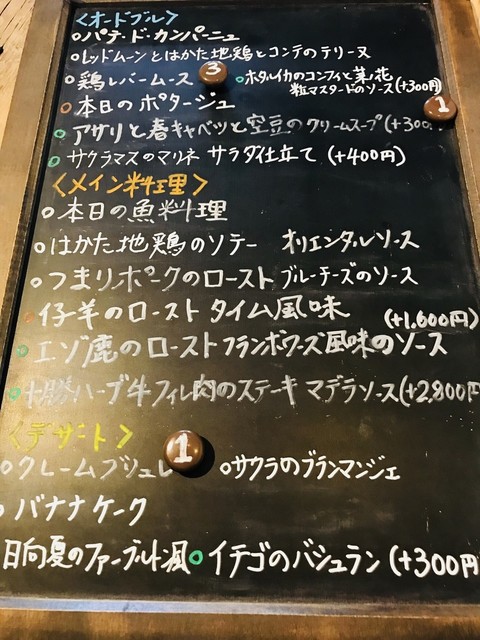 <オードブル>
○パテ・ド・カンパーニュ
○レッドムーンとはかた地鶏とコンテのテリーヌ
○鶏レバームース 3 ○ホタルイカのコンフィと菜の花
粒マスタードのソース(+300円)
○本日のポタージュ 1
○アサリと春キャベツと空豆のクリームスープ(+300
○サクラマスのマリネ サラダ仕立て (+400円)
<メイン料理>
○本日の魚料理
○はかた地鶏のソテー オリエンタルソース
○つまりポークのロースト ブルーチーズのソース
○仔羊のロースト タイム風味 (+1,600円)
○エゾ鹿のロースト フランボワーズ風味のソース
○十勝ハーブ牛フィレ肉のステーキ マデラソース(+2,800円
<デザート>
○クレームブリュレ 1 ○サクラのブランマンジェ
○バナナケーク
日向夏のファーブルトン風 ○イチゴのバシュラン (+300円